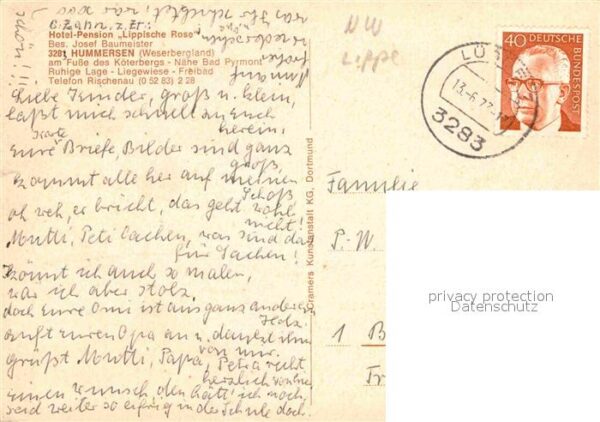 Hotel-Pension „Lippische Rose"
Bes. Josef Baumeister
3281 HUMMERSEN (Weserbergland)
am Fuße des Köterbergs - Nähe Bad Pyrmont
Ruhige Lage - Liegewiese - Freibad
Telefon Rischenau (0 52 83) 2 28
Liebe Kinder, groß u. klein,
laßt mich schnell zu Euch
herein,
Karte
Eure Briefe, Bilder sind ganz
groß,
kommt alle her auf meinen
Schoß,
oh weh, er bricht, das geht wohl
nicht!
Mutti, Peti lachen, was sind das
für Sachen!
Könnt ich auch so malen,
wär ich aber stolz,
doch Eure Omi ist aus ganz anderem
Holz.
Ruft Euren Opa an u. dankt ihm
von mir.
grüßt Mutti, Papa, Petra recht
herzlich von mir
Einen Wunsch, den hätt' ich noch,
seid weiter so eifrig in der Schule doch.
schön!!!
Cramers Kunstanstalt KG, Dortmund
NW
Lippe
3283
40 DEUTSCHE
BUNDESPOST
Familie
P. W.
1 B
privacy protection
Datenschutz